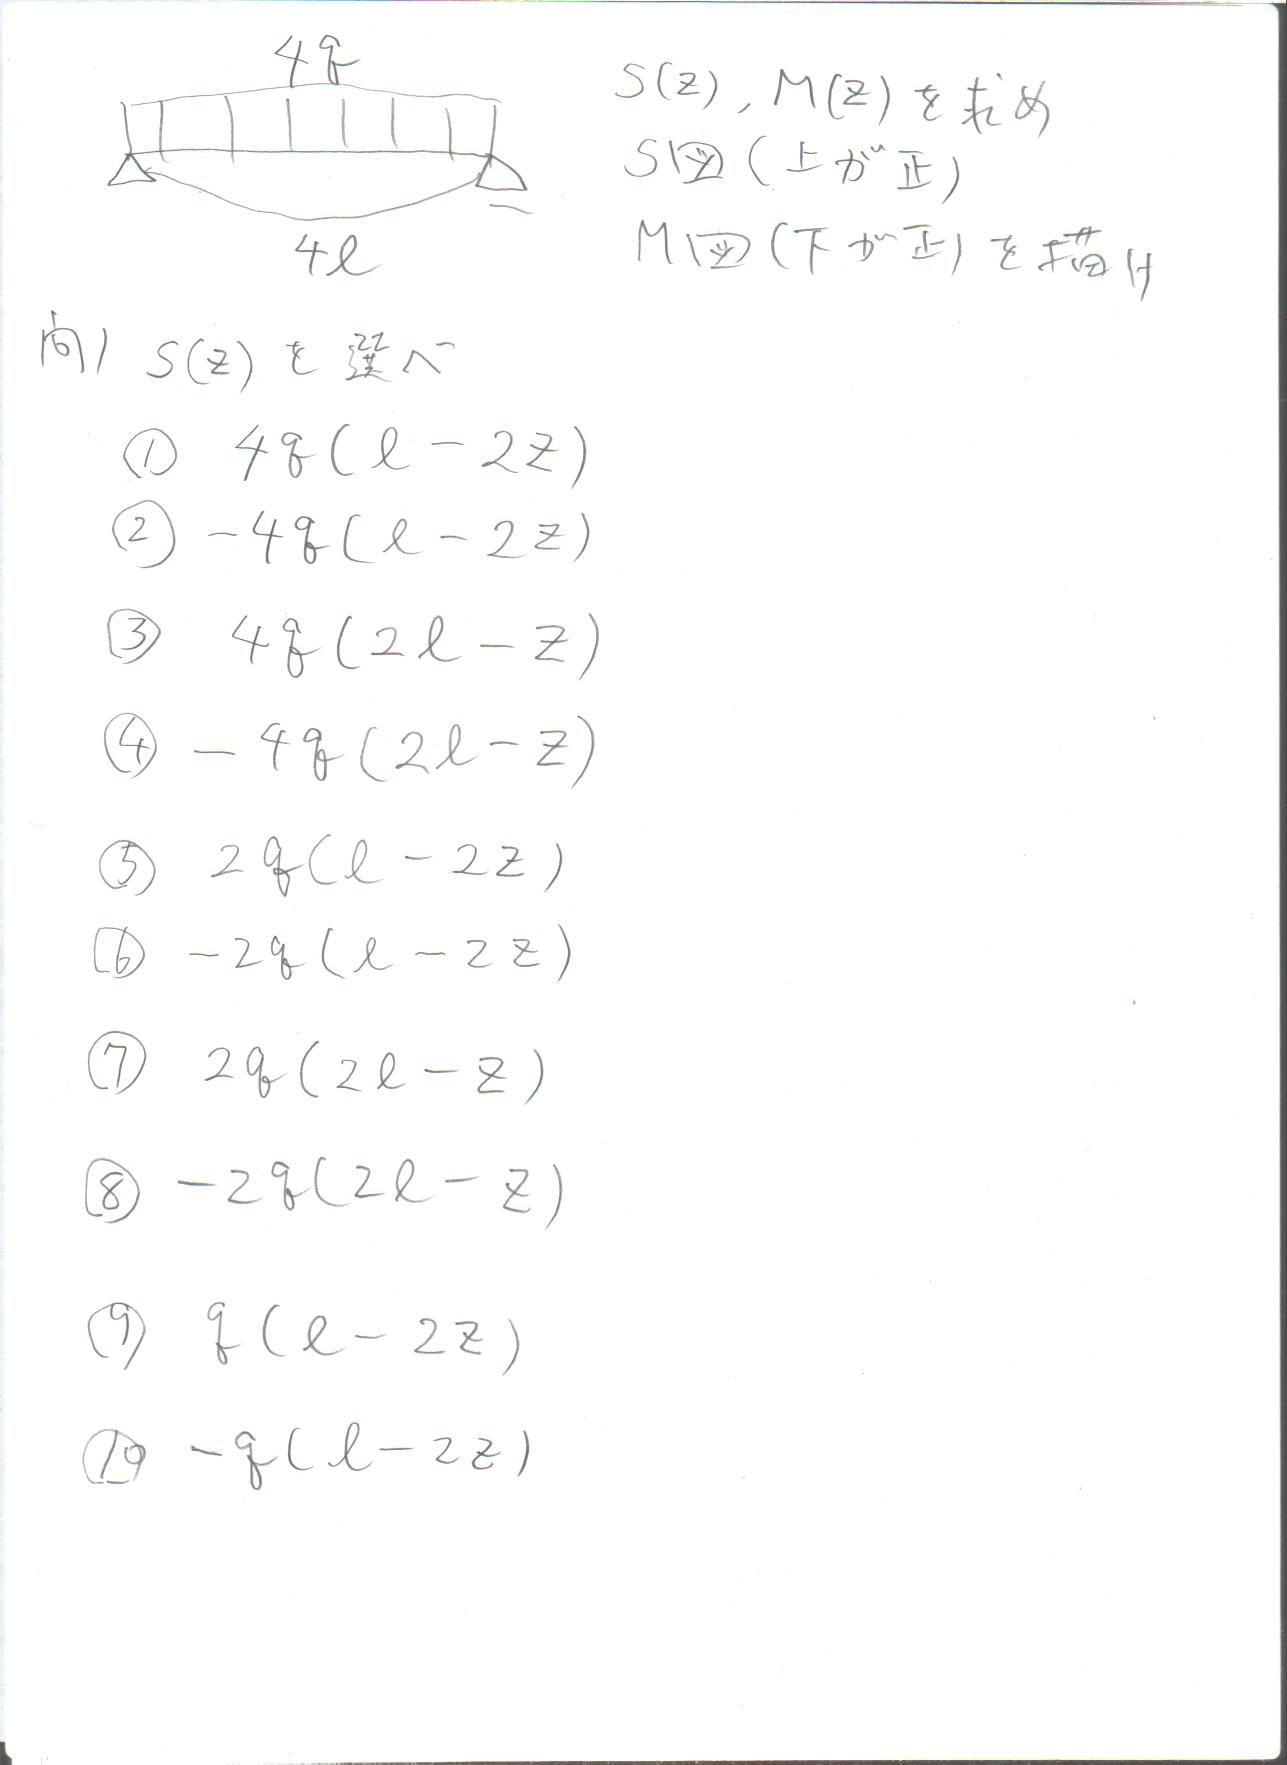 4q
S(z), M(z)を求め
S図(上が正)
M図(下が正)を描け
4ℓ
問1 S(z)を選べ
① 4q(ℓ-2z)
② -4q(ℓ-2z)
③ 4q(2ℓ-z)
④ -4q(2ℓ-z)
⑤ 2q(ℓ-2z)
⑥ -2q(ℓ-2z)
⑦ 2q(2ℓ-z)
⑧ -2q(2ℓ-z)
⑨ q(ℓ-2z)
⑩ -q(ℓ-2z)